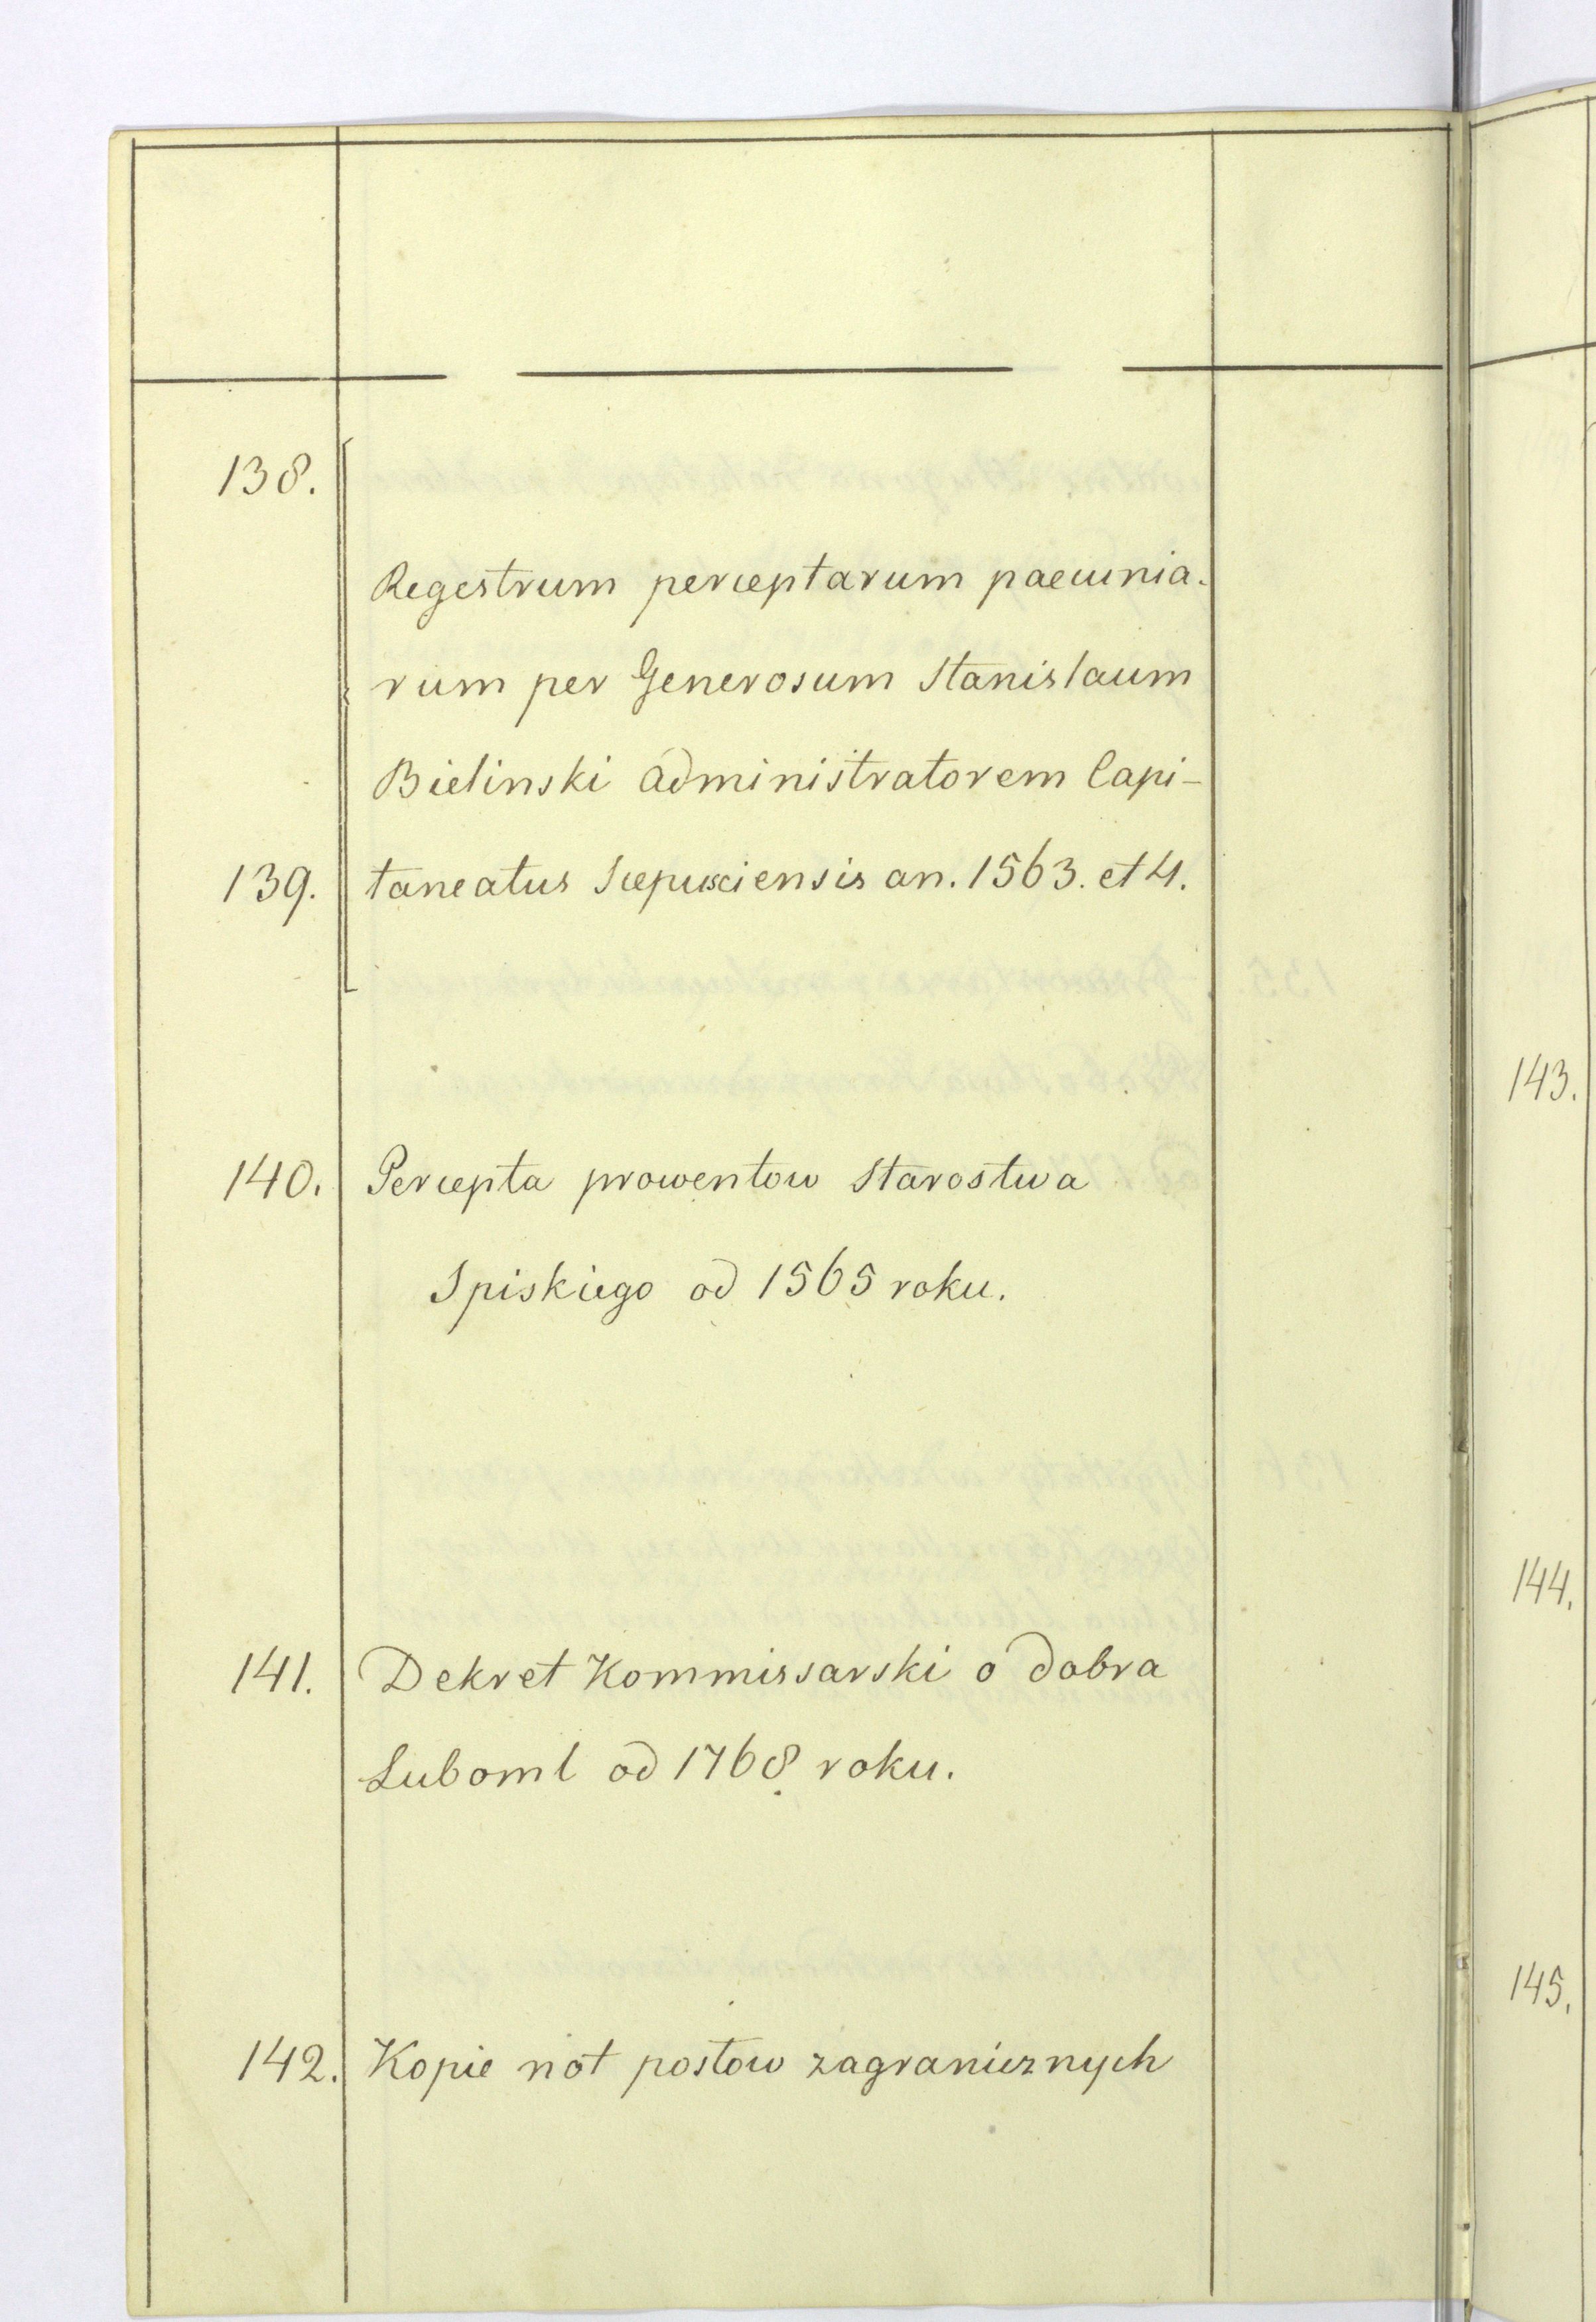 138.
Regestrum perceptarum paecunia-
rum per Generosum Stanislaum
Bielinski administratorem Capi-
139. taneatus Scepusciensis an. 1563. et 4.
140. Percepta prowentow Starostwa
Spiskiego od 1565 roku.
141. Dekret Kommissarski o dobra
Luboml od 1768 roku.
142. Kopie not postow zagranicznych
143.
144.
145.